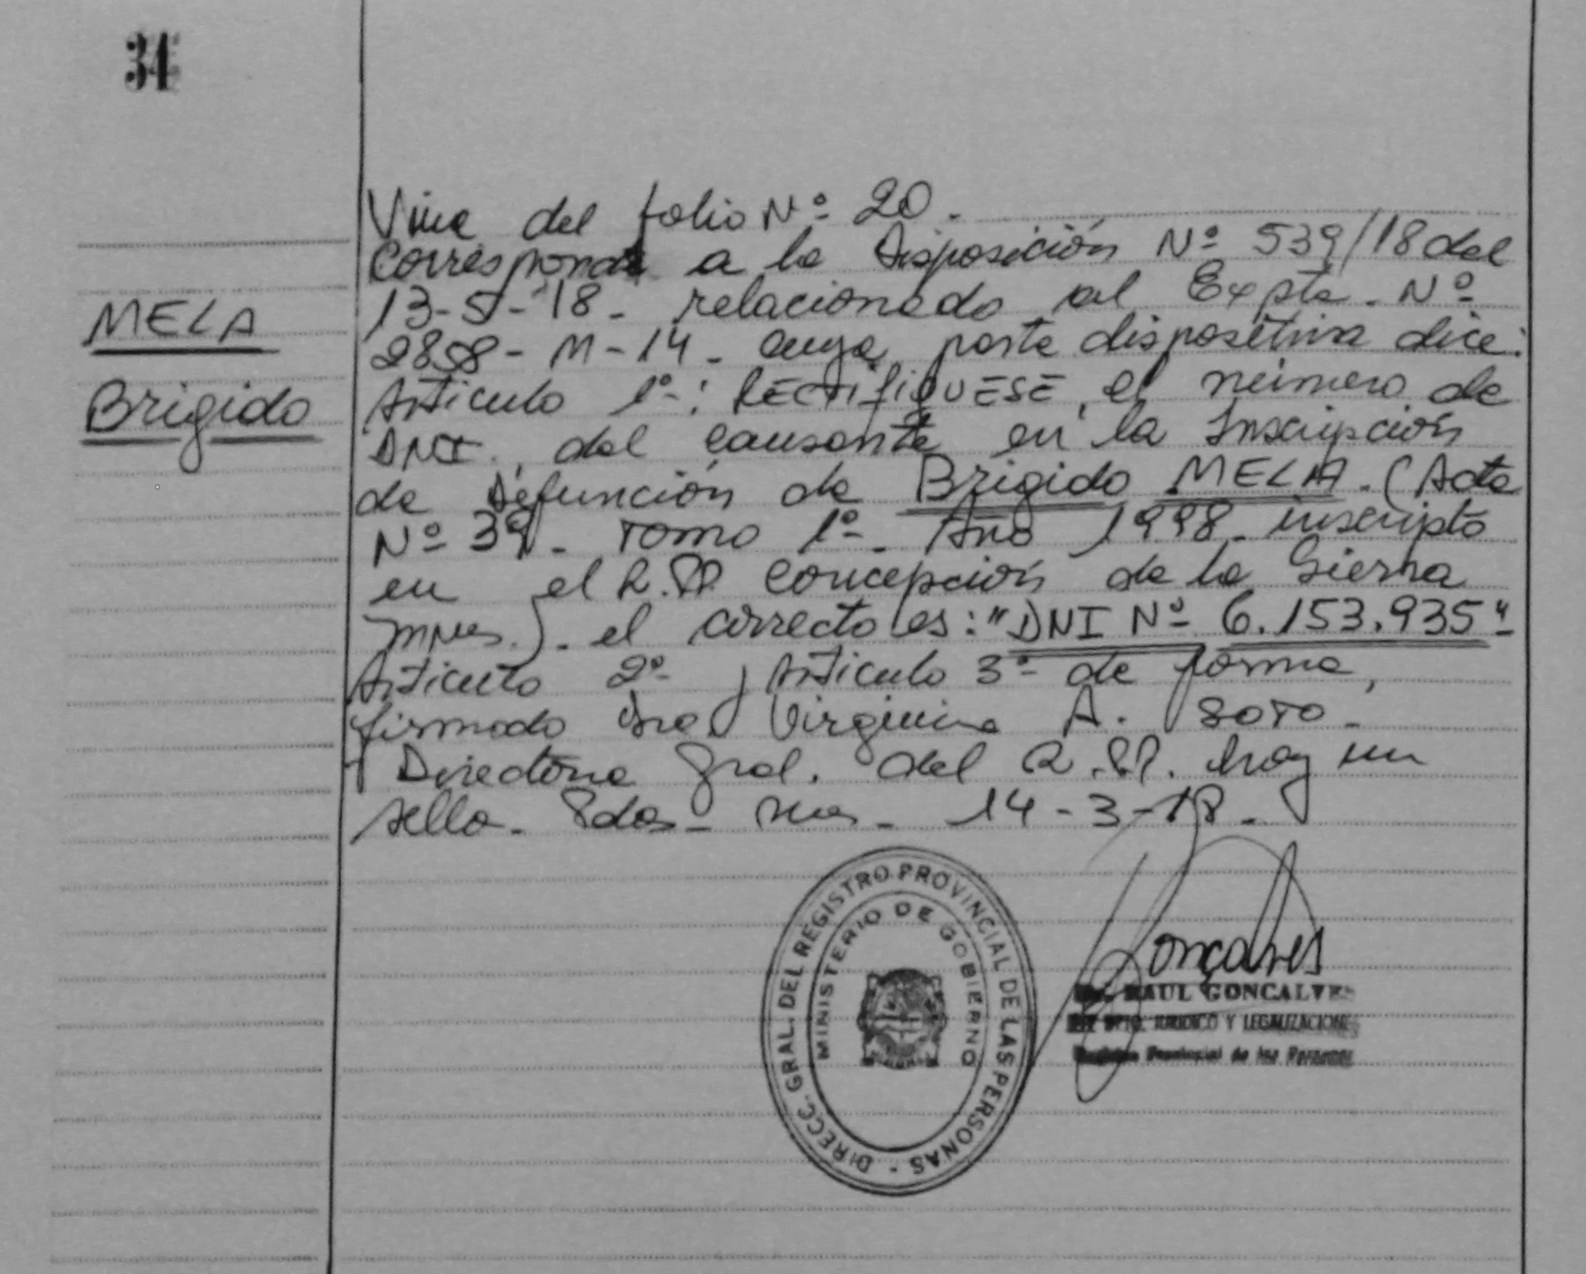 34
MELA
Brigido
Vine del folio Nº 20.
Corresponde a la Disposición Nº 539/18 del
13-5-18. relacionado al Expte. Nº
2858-M-14. cuya parte dispositiva dice:
Articulo 1º: RECTIFIQUESE, el número de
DNI., del causante en la Inscripción
de Defunción de Brigido MELA. (Acta
Nº 39. Tomo 1º. Año 1998. inscripto
en el R.PP Concepción de la Sierra
Mnes.). el correcto es: "DNI Nº 6.153.935"
Articulo 2º y Articulo 3º de forma,
firmado Dra Virginia A. SOTO.
Directora Gral. del R.PP. hay un
sello. Pdas. 14-3-18.
DIRECC. GRAL. DEL REGISTRO PROVINCIAL DE LAS PERSONAS -
MINISTERIO DE GOBIERNO
Gonçalves
RAUL GONCALVES
DPTO. JURIDICO Y LEGALIZACIONES
Registro Provincial de las Personas